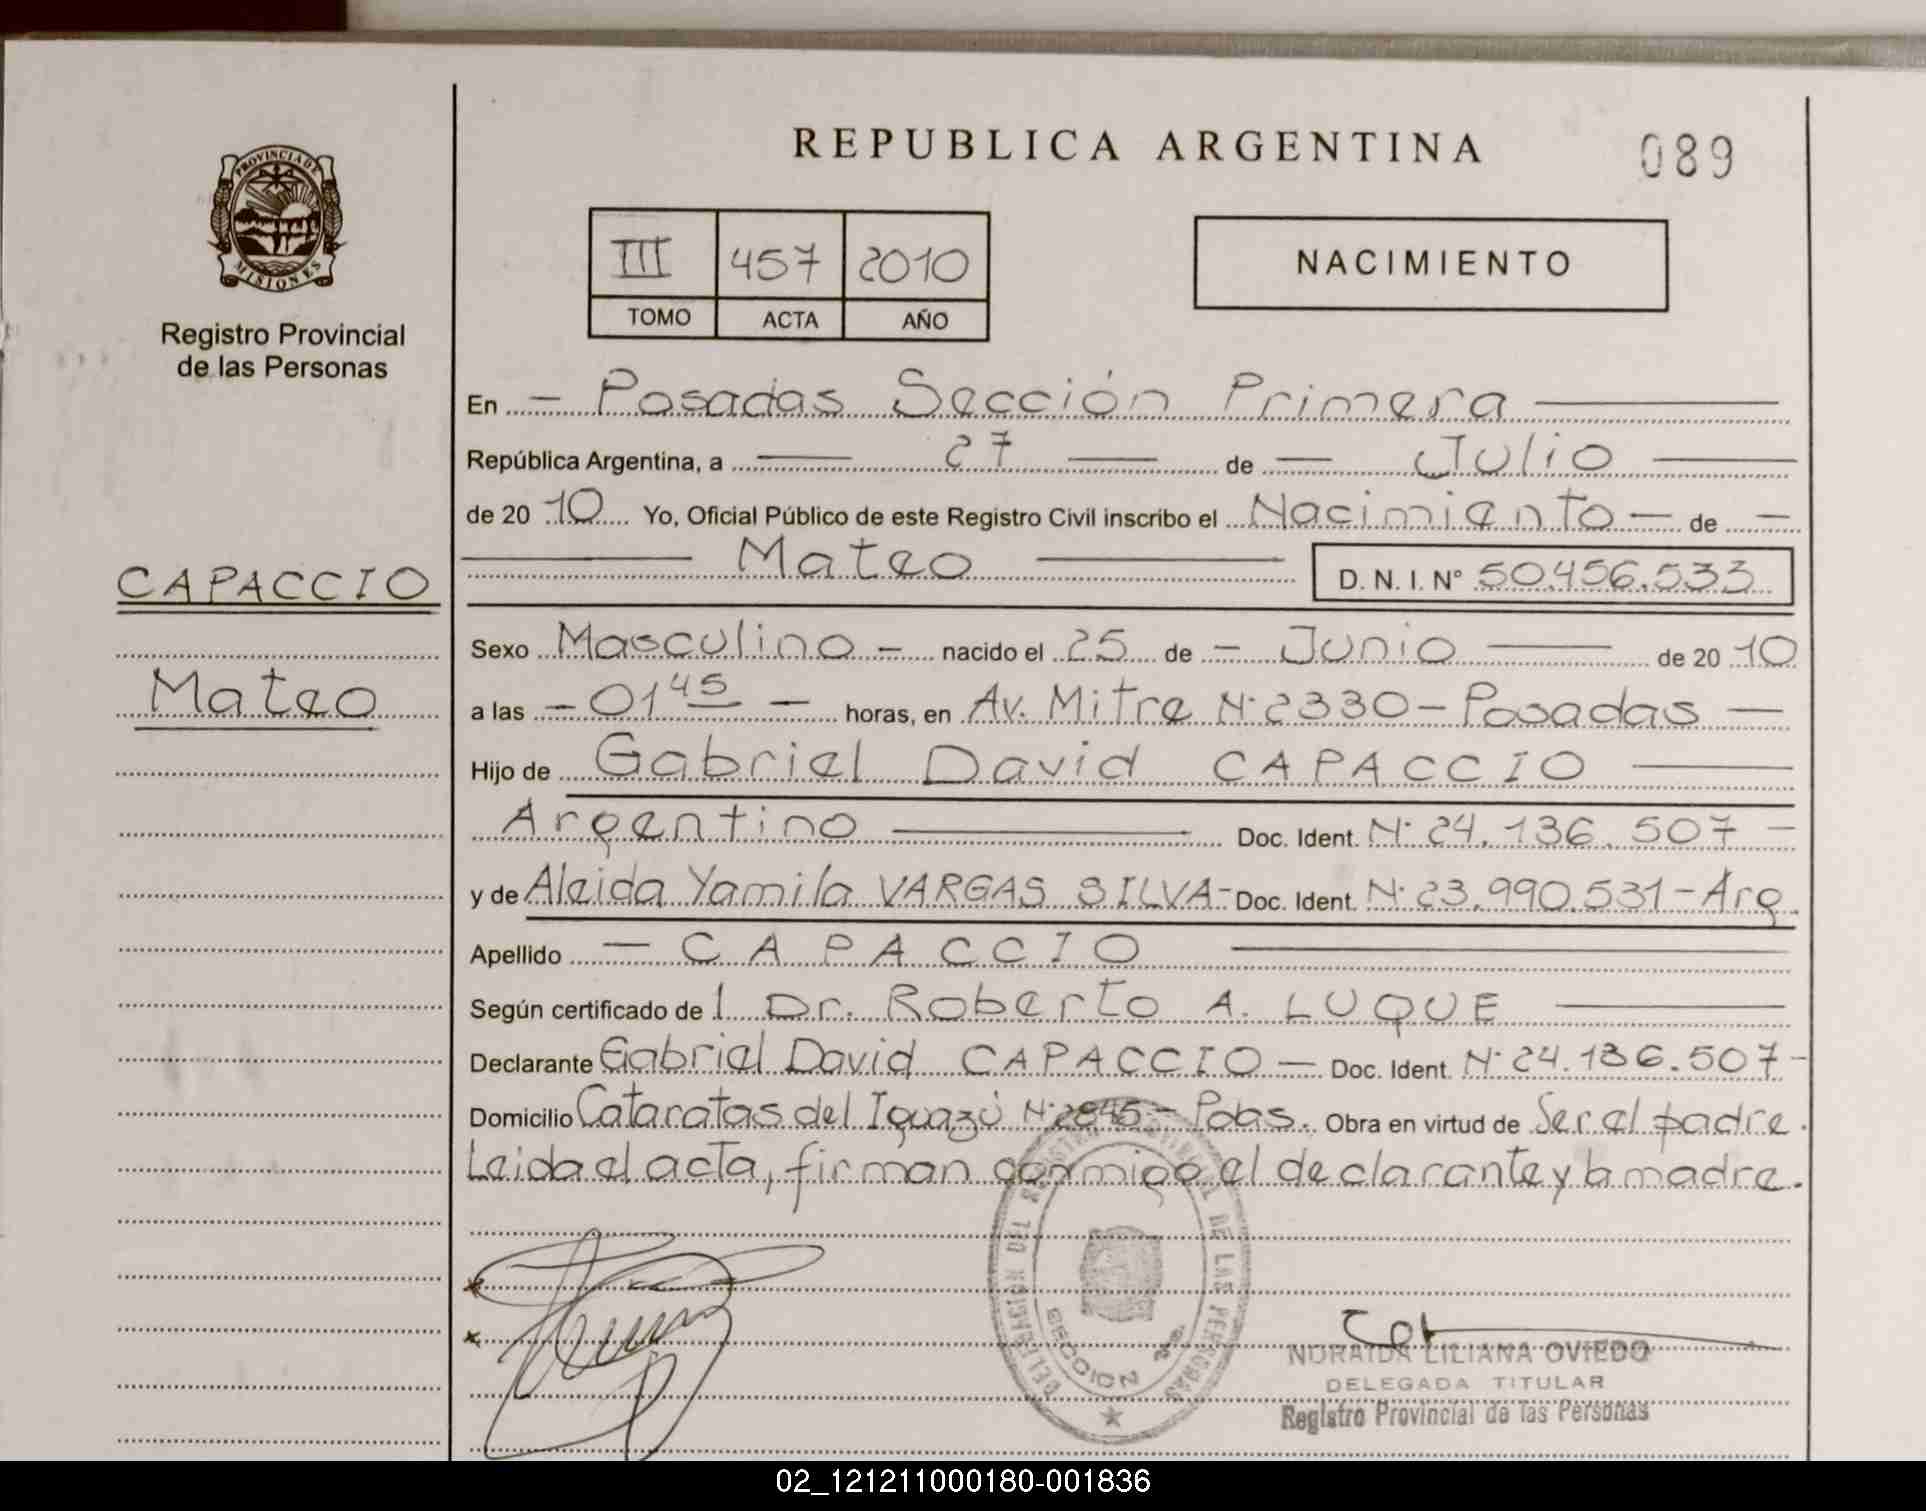 PROVINCIA DE
MISIONES
Registro Provincial
de las Personas
CAPACCIO
Mateo
REPUBLICA ARGENTINA
089
III 457 2010
TOMO ACTA AÑO
NACIMIENTO
En - Posadas Sección Primera
República Argentina, a 27 de - Julio
de 2010 Yo, Oficial Público de este Registro Civil inscribo el Nacimiento - de -
Mateo D. N. I. N° 50.456.533
Sexo Masculino - nacido el 25 de - Junio de 2010
a las - 01 45 - horas, en Av. Mitre N° 2330 - Posadas -
Hijo de Gabriel David CAPACCIO
Argentino Doc. Ident. N° 24.136.507 -
y de Aleida Yamila VARGAS SILVA - Doc. Ident. N° 23.990.531 - Arg.
Apellido - CAPACCIO
Según certificado de l Dr. Roberto A. LUQUE
Declarante Gabriel David CAPACCIO - Doc. Ident. N° 24.136.507 -
Domicilio Cataratas del Iguazú N° 2845 - Pdas. Obra en virtud de Ser el padre.
Leida el acta, firman conmigo el declarante y la madre.
DELEGACION DEL REGISTRO PROVINCIAL DE LAS PERSONAS
SECCION 1ra
NORAIDA LILIANA OVIEDO
DELEGADA TITULAR
Registro Provincial de las Personas
02_121211000180-001836